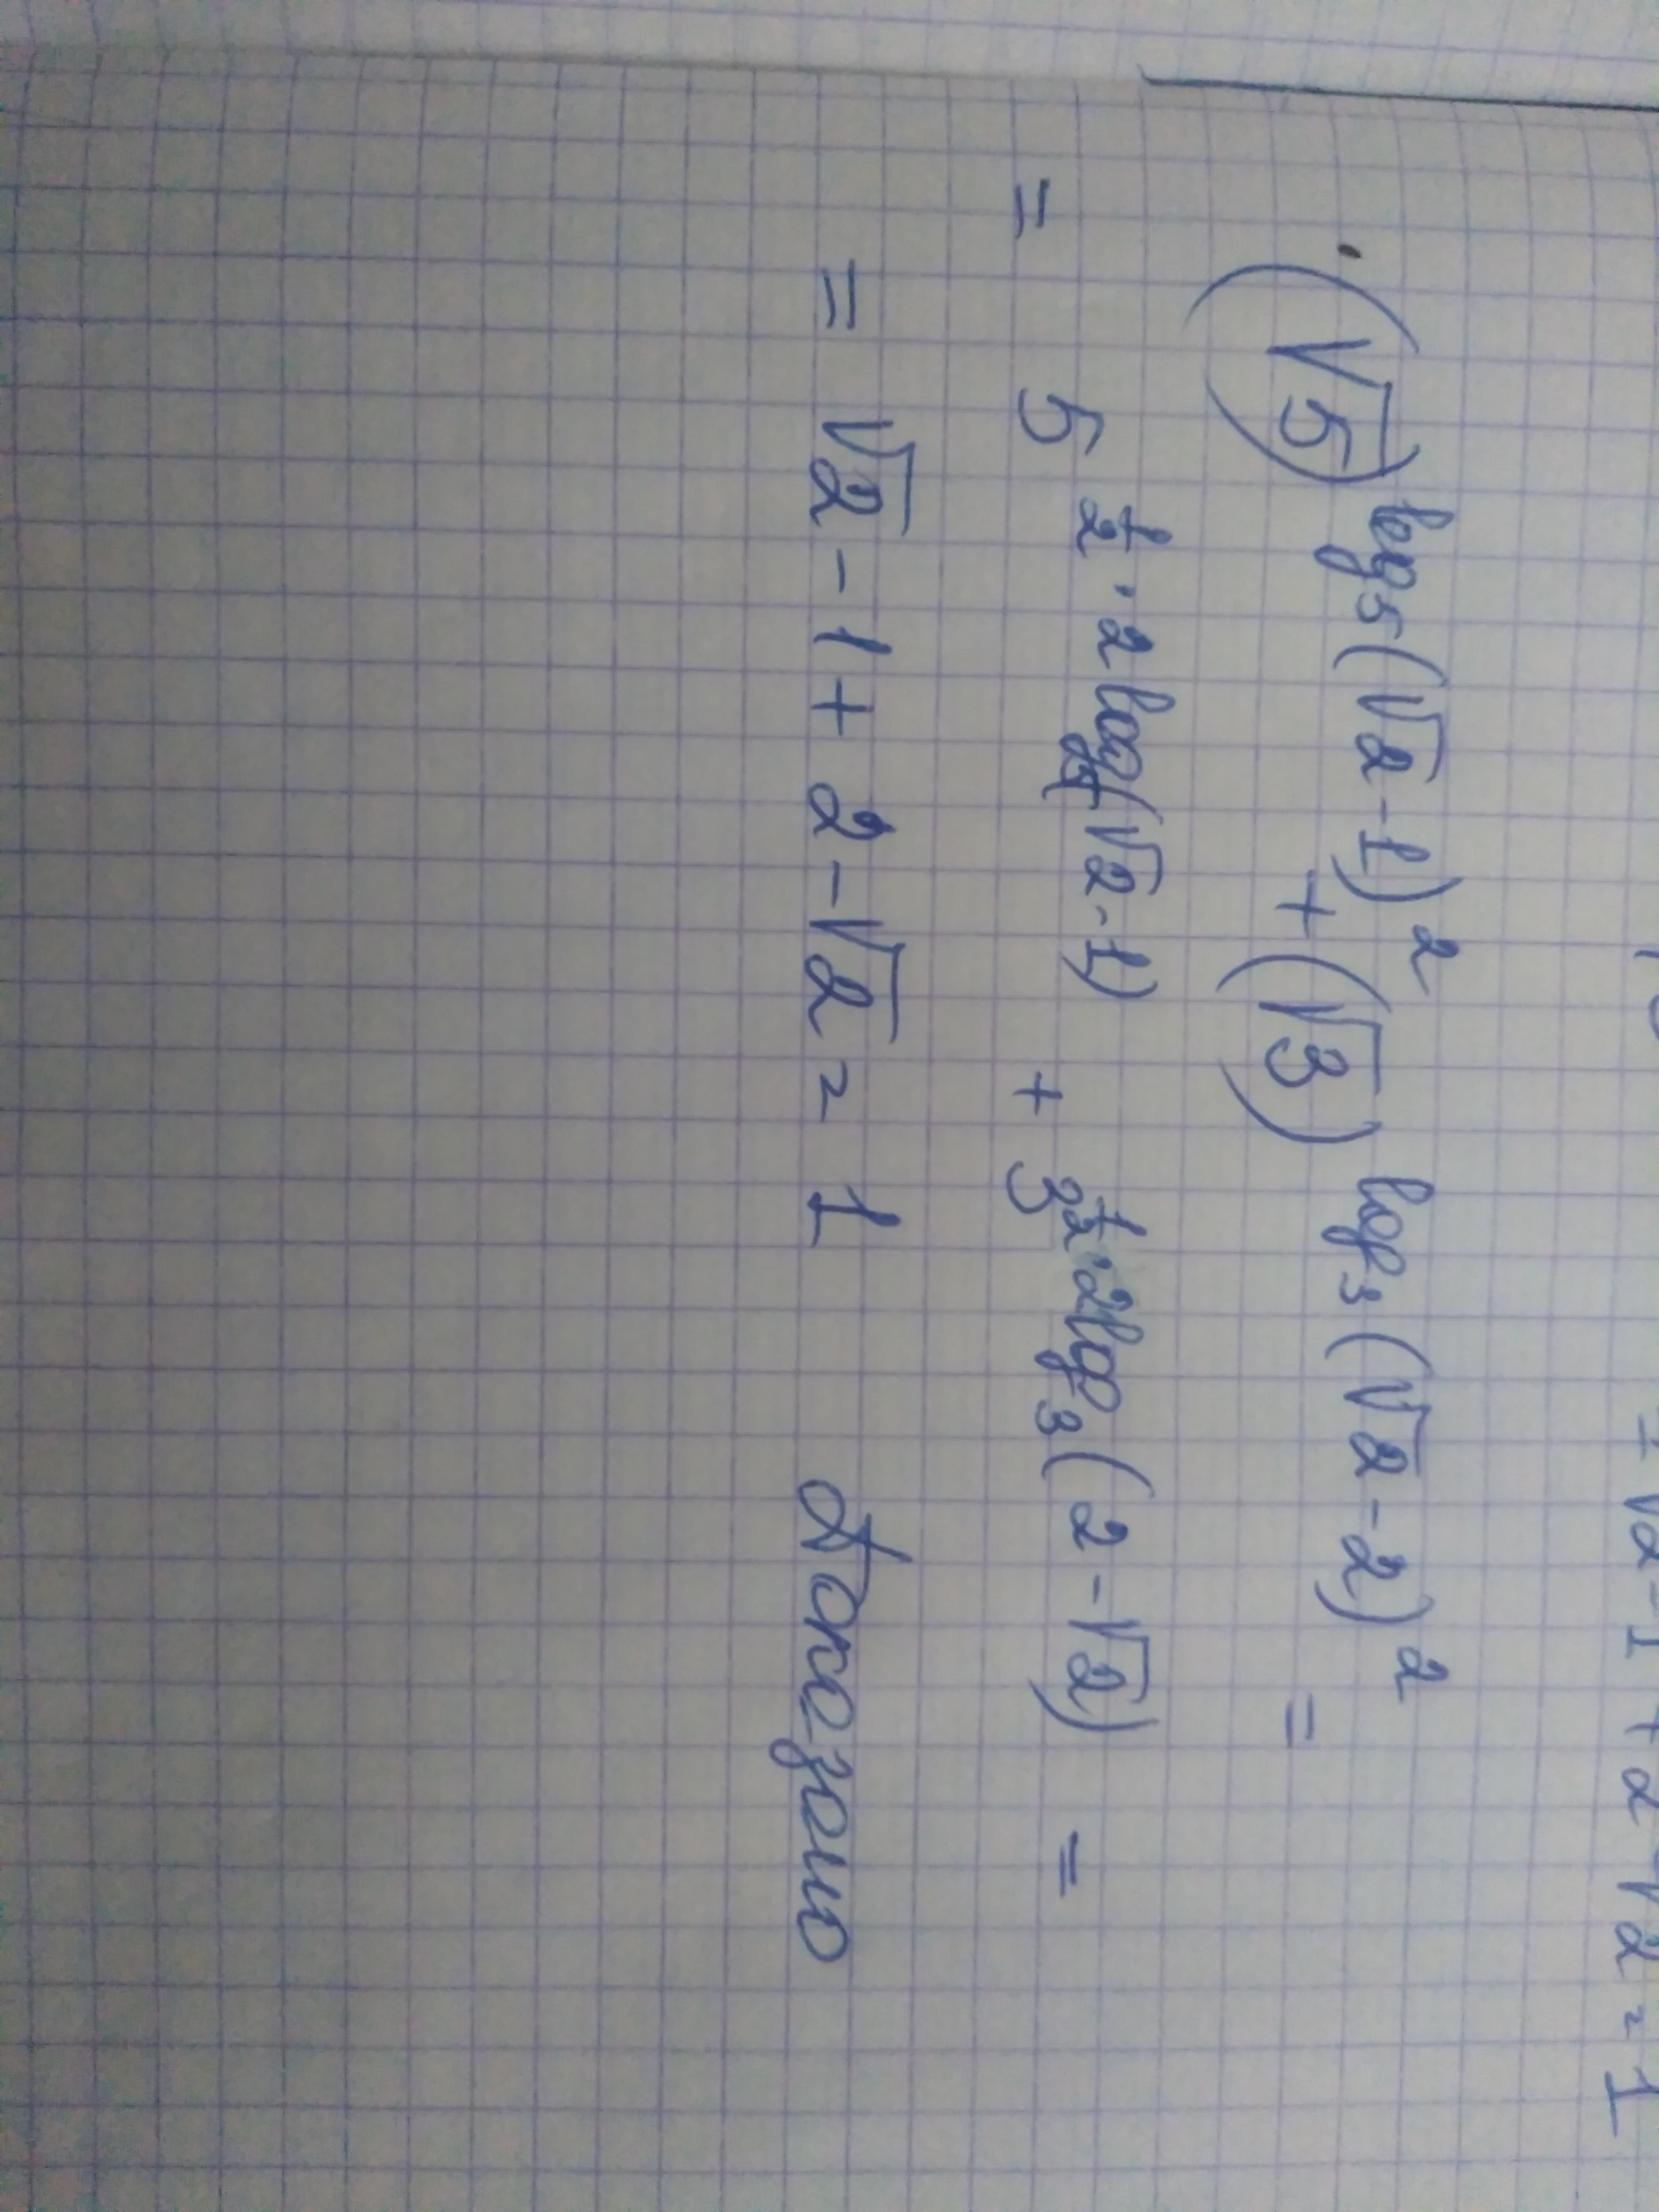 = √2 - 1 + 2 - √2 = 1
(√5)^log₅(√2-1)² + (√3)^log₃(√2-2)² =
= 5^½·2log₅(√2-1) + 3^½·2log₃(2-√2) =
= √2 - 1 + 2 - √2 = 1 Доказано